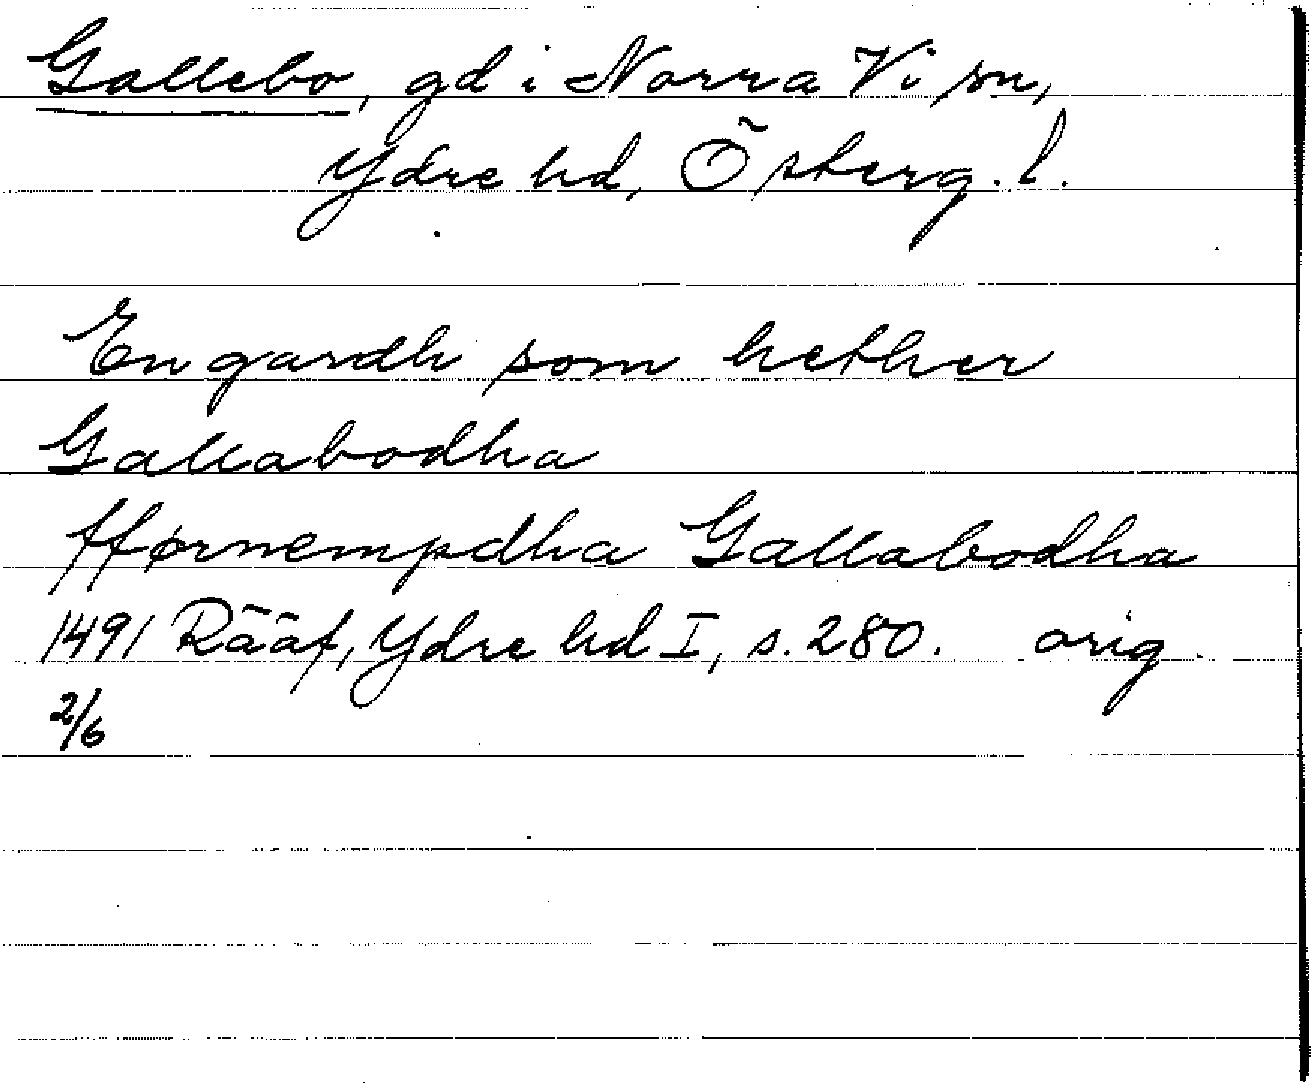 Gallebo, gd i Norra Vi sn,
Ydre hd, Österg. l.
En gardh som hether
Gallabodha
fførnempdha Gallabodha
1491 Rääf, Ydre hd I, s. 280. orig.
2/6